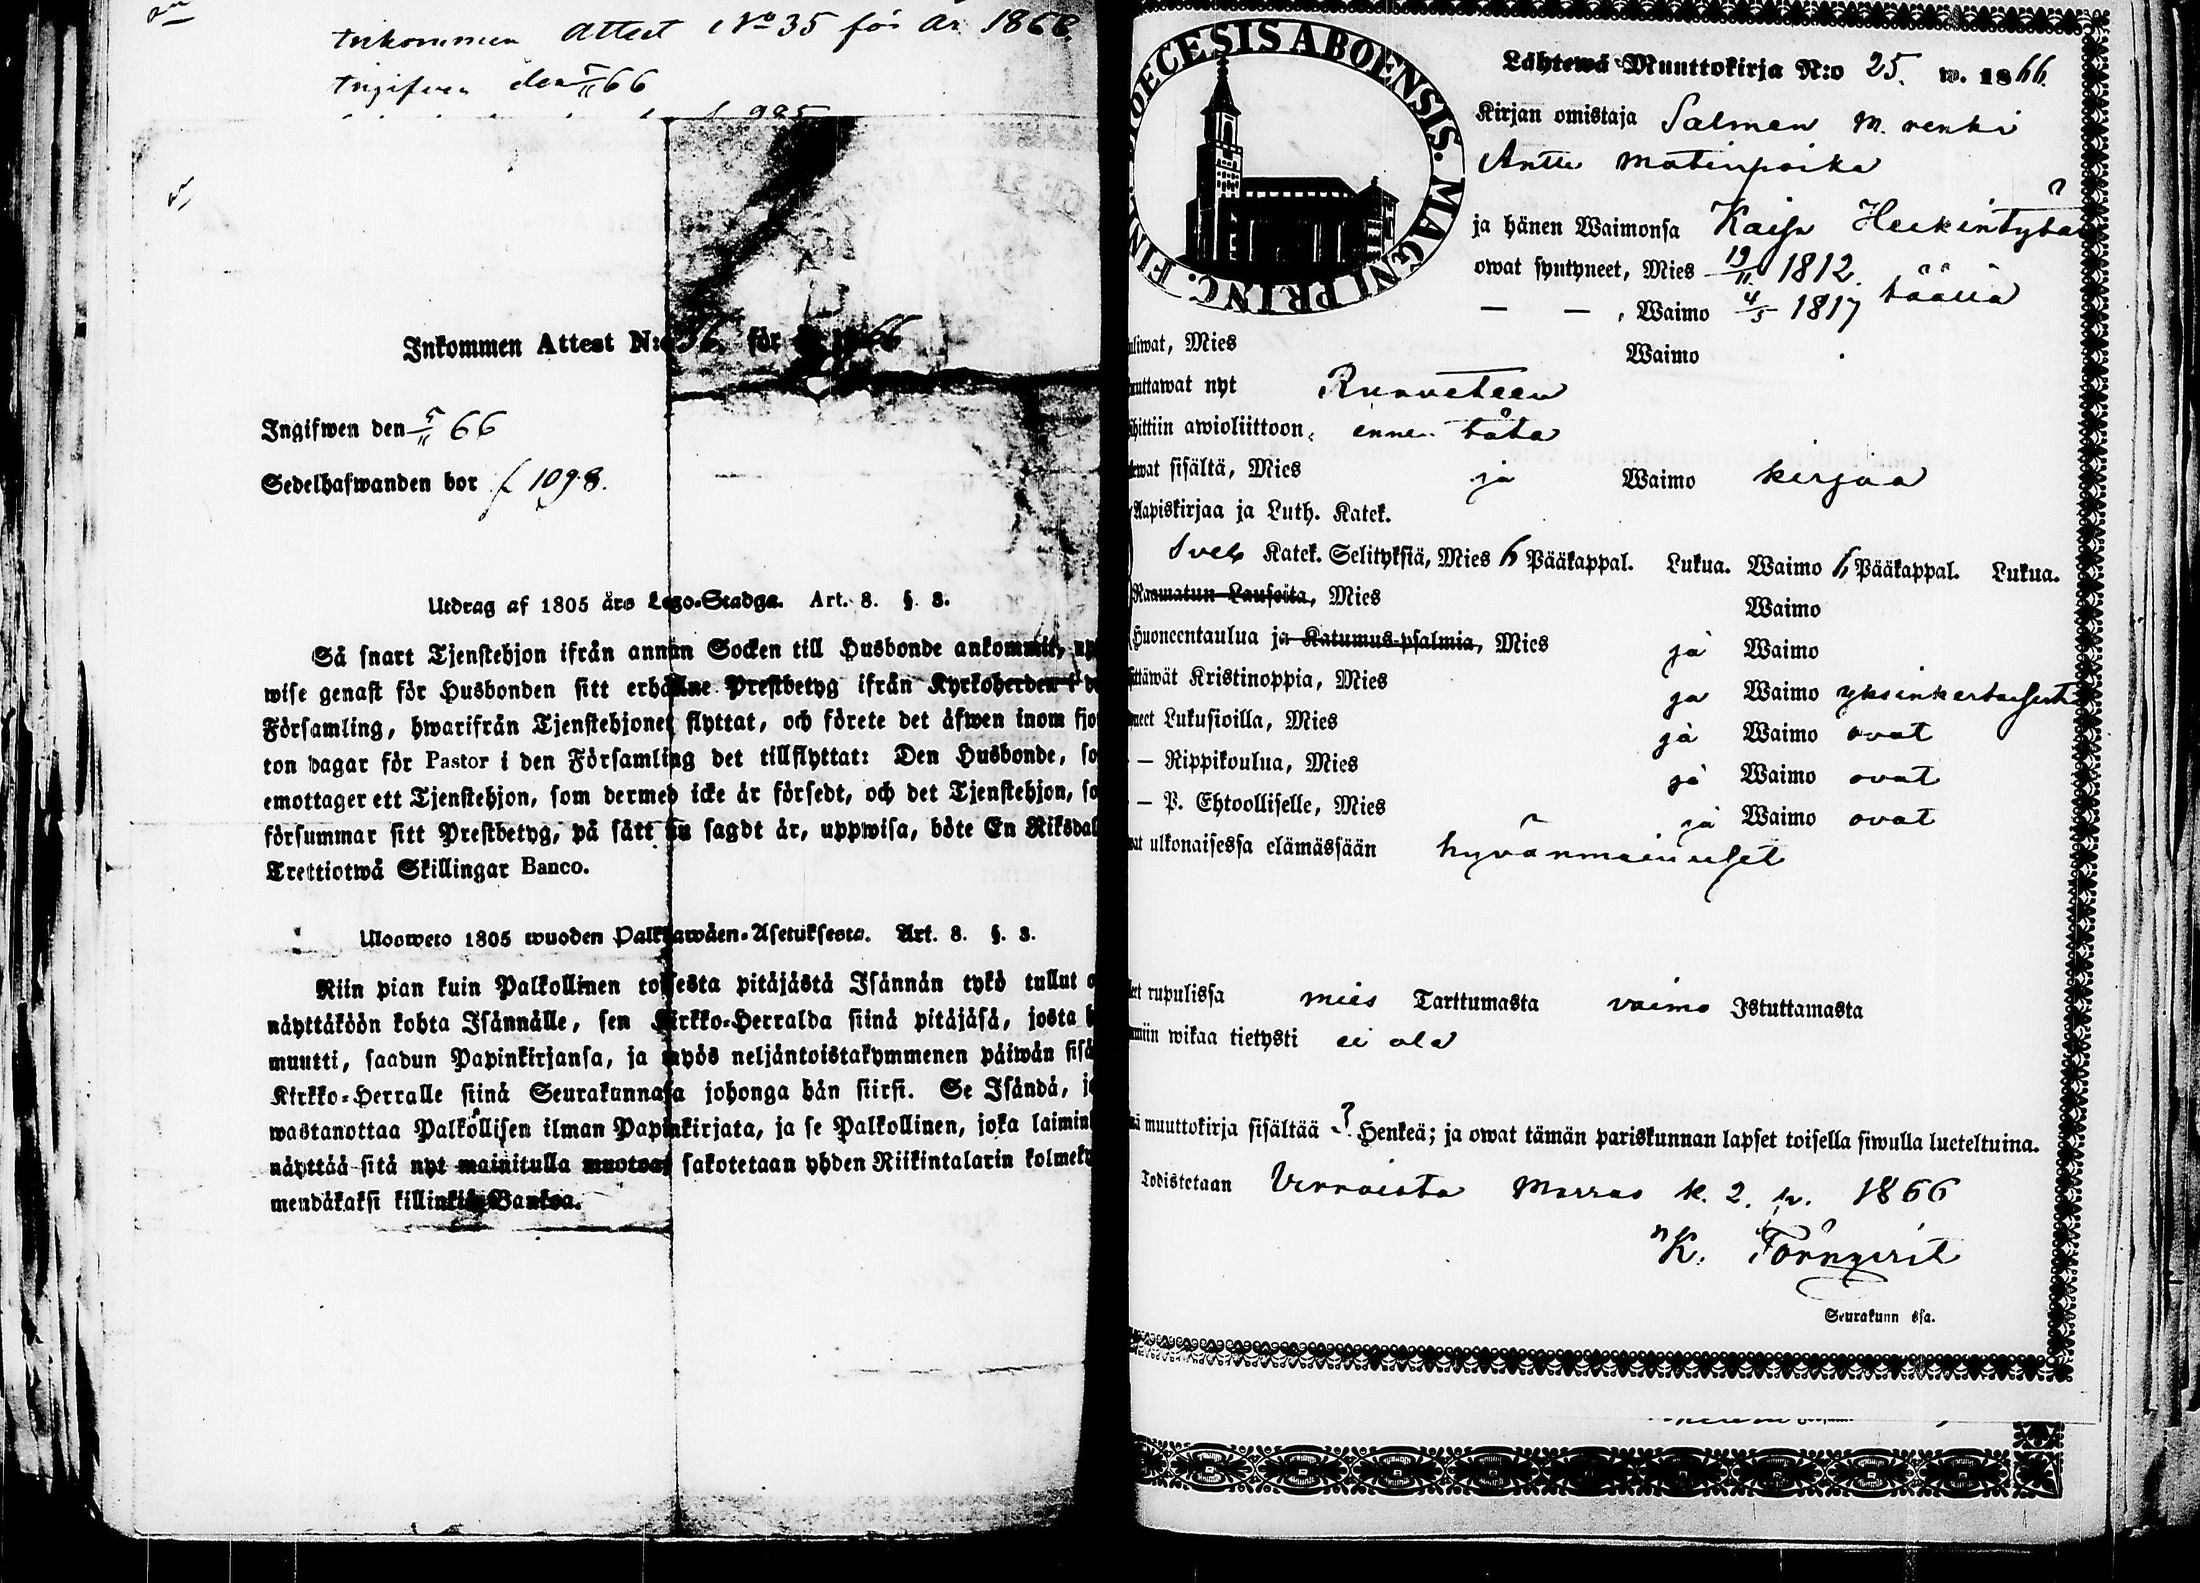 Inkommen Attest No 35 för år 1866.
Ingifven den 5/11 66
f 985
Inkommen Attest N:o 36. för 1866
Ingifwen den 5/11 66
Sedelhafwanden bor f 1098.
Utdrag af 1805 års Lego-Stadga. Art. 8. §. 8.
Så snart Tjenstehjon ifrån annan Socken till Husbonde ankommit,
wise genast för Husbonden sitt erhållne Prestbetyg ifrån Kyrkoherden i
Församling, hwarifrån Tjenstehjonet flyttat, och förete det äfwen inom fjor
ton dagar för Pastor i den Församling det tillflyttat: Den Husbonde, so
emottager ett Tjenstehjon, som dermed icke är försedt, och det Tjenstehjon, so
försummar sitt Prestbetyg, på sätt nu sagdt är, uppwisa, böte En Riksdal
Trettiotwå Skillingar Banco.
Ulosweto 1805 wuoden Palkkawäen-Asetuksesta. Art. 8. §. 8.
Niin pian kuin Palkollinen toisesta pitäjästä Isännän tykö tullut
näyttäköön kohta Isännälle, sen Kirkko-Herralda siinä pitäjäsä, josta
muutti, saadun Papinkirjansa, ja myös neljäntoistakymmenen päiwän sisä
Kirkko-Herralle siinä Seurakunnasa johonga hän siirsi. Se Isändä, jo
wastanottaa Palkollisen ilman Papinkirjata, ja se Palkollinen, joka laimin
näyttää sitä nyt mainitulla muotoa, sakotetaan yhden Riikintalarin kolmeky
mendäkaksi killinkiä Bankoa.
DIOECESIS ABOENSIS. MAGNI PRINC. FINL.
Lähtewä Muuttokirja N:o 25. w. 1866.
Kirjan omistaja Salmen m. renki
Antti Matinpoika
ja hänen Waimonsa Kaisa Heikintytär
owat syntyneet, Mies 19/11 1812.
— — , Waimo 4/5 1817 täällä
uliwat, Mies Waimo
uuttawat nyt Ruoveteen
hittiin awioliittoon, ennen tätä
ewat sisältä, Mies ja Waimo kirjaa
Aapiskirjaa ja Luth. Katek.
Sveb Katek. Selityksiä, Mies 6 Pääkappal. Lukua. Waimo 6 Pääkappal. Lukua.
Raamatun Lauseita, Mies Waimo
Huoneentaulua ja Katumus-psalmia, Mies ja Waimo
ttäwät Kristinoppia, Mies ja Waimo yksinkertaisesti
neet Lukusioilla, Mies ja Waimo ovat
— Rippikoulua, Mies ja Waimo ovat
— P. Ehtoolliselle, Mies ja Waimo ovat
wat ulkonaisessa elämässään hyvänmainuiset
eet rupulissa mies Tarttumasta vaimo Istuttamasta
umiin wikaa tietysti ei ole
mä muuttokirja sisältää 3 Henkeä; ja owat tämän pariskunnan lapset toisella siwulla lueteltuina.
Todistetaan Virroista Marras k. 2. p. 1866
K. Törnqvist
Seurakunn ssa.